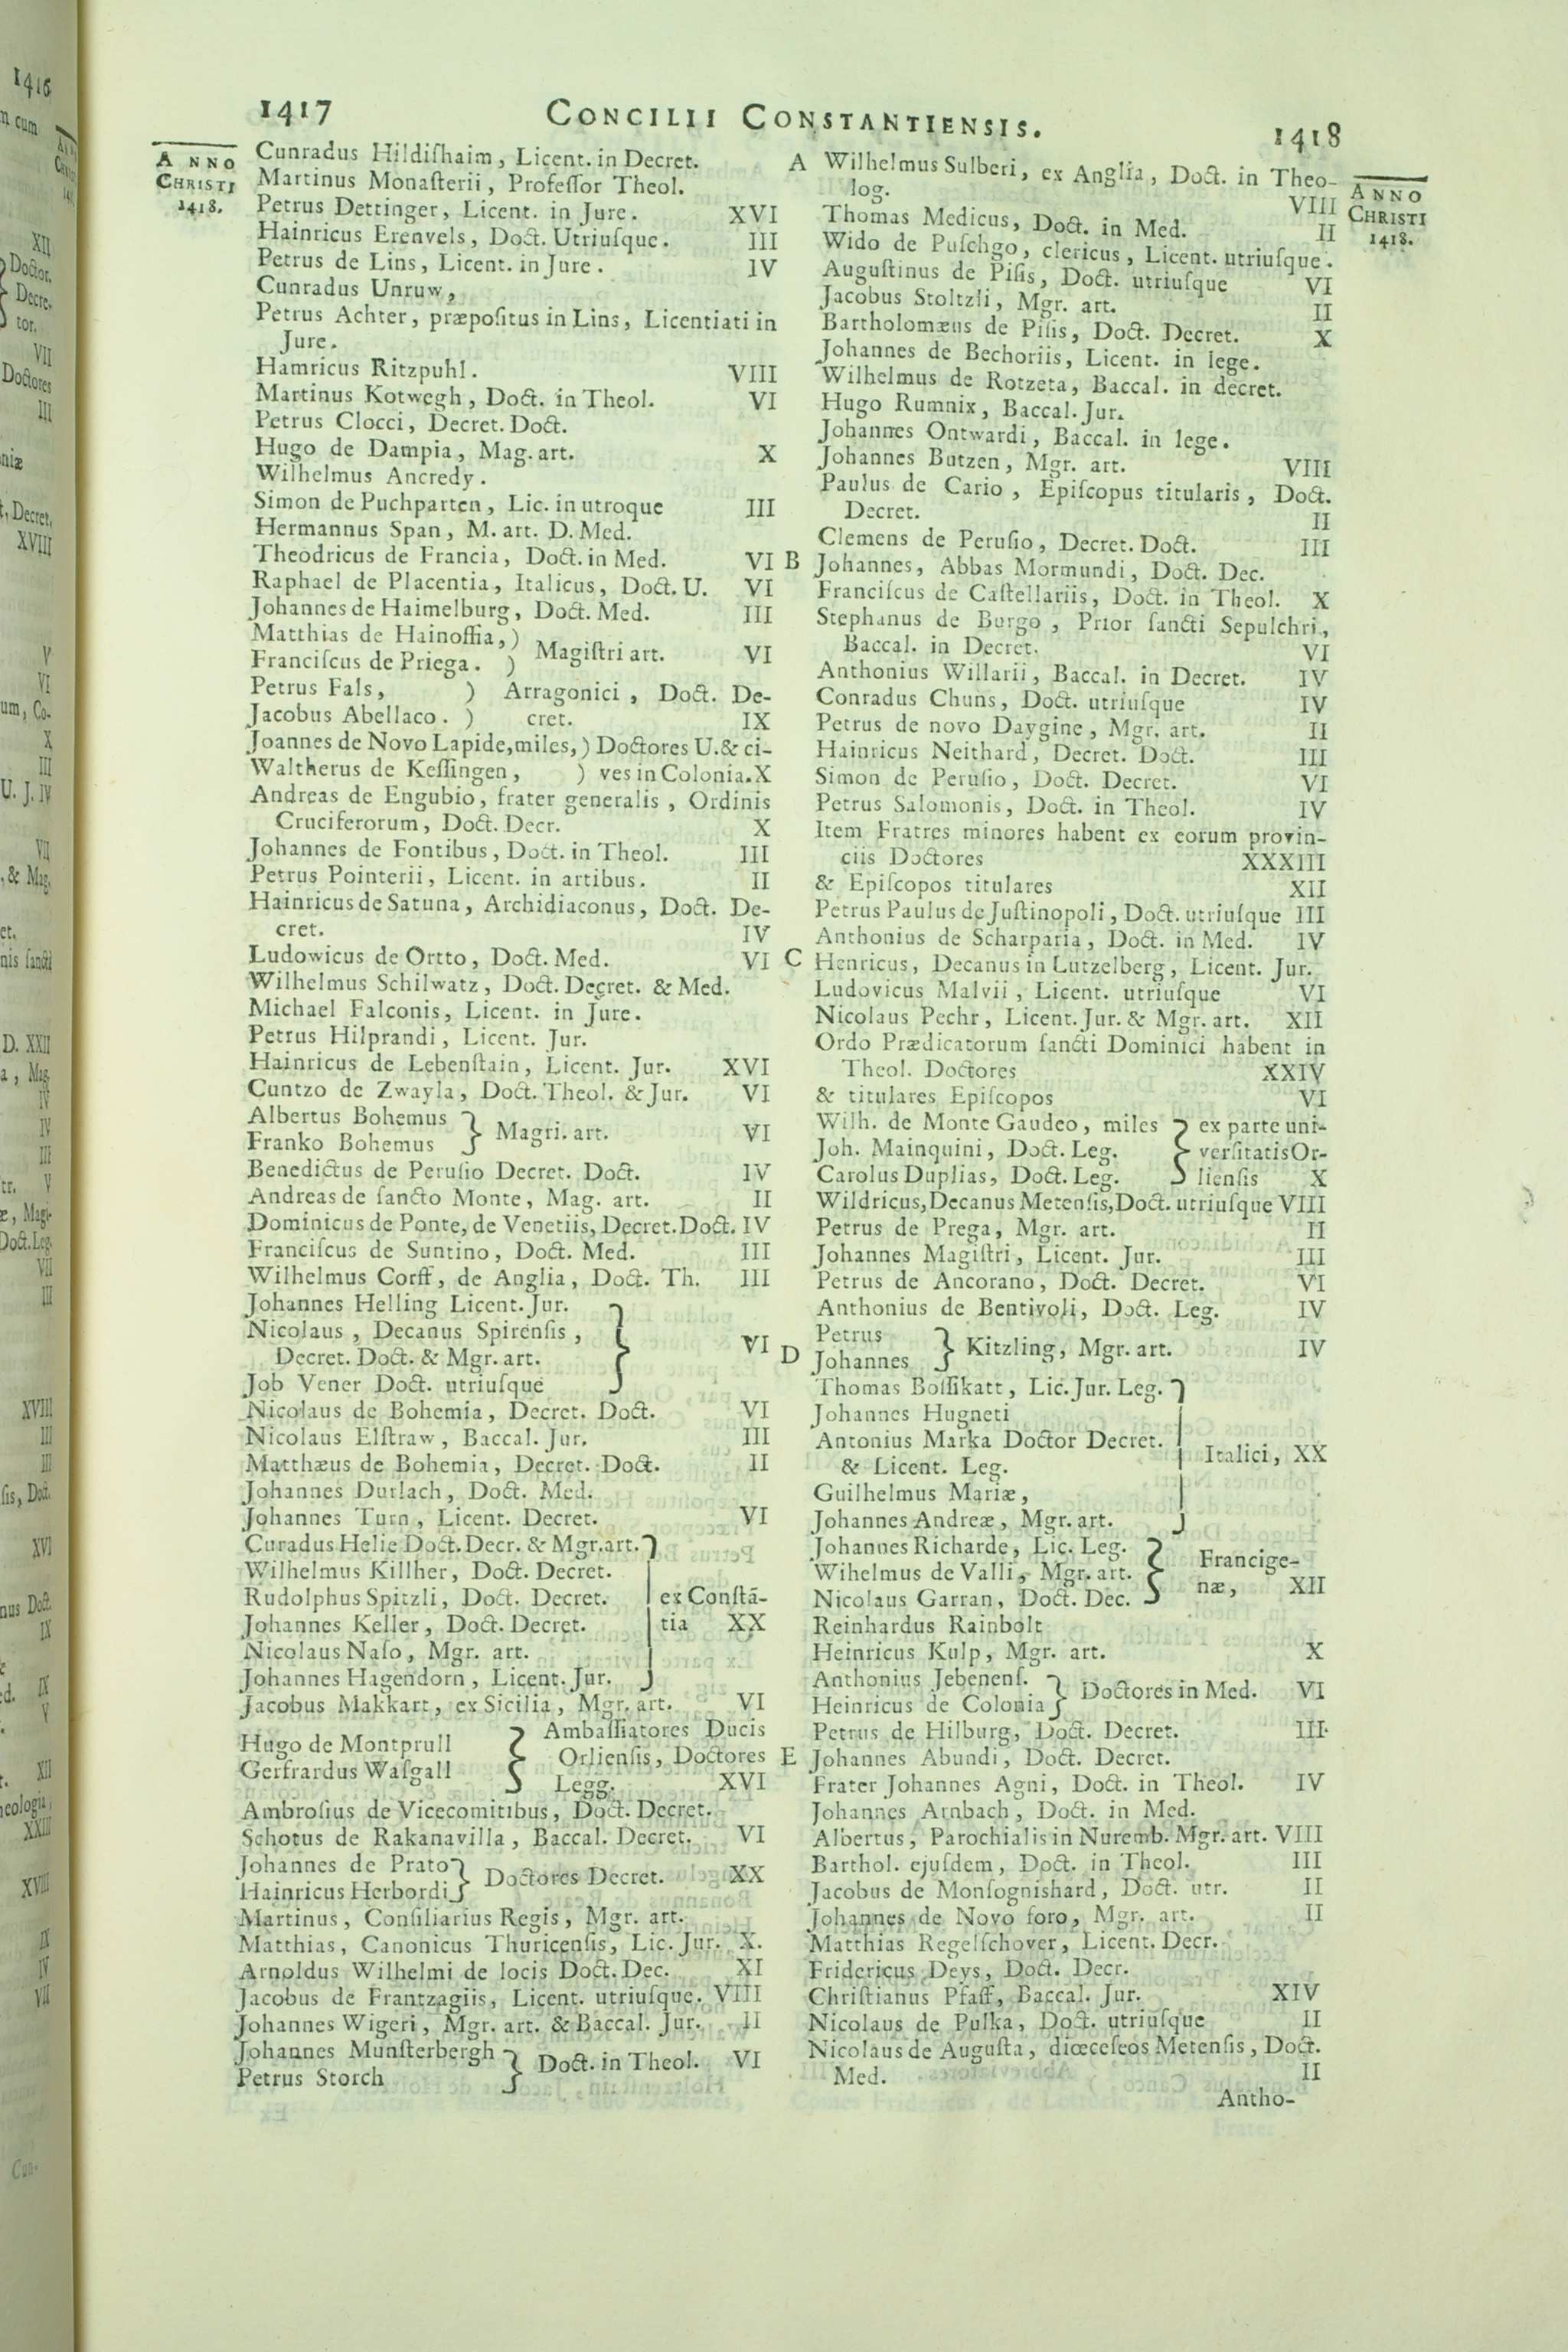 1417
CONCILII CONSTANTIENSIS.
1418
ANNO
CHRISTI
1418.
Cunradus Hildiſhaim, Licent. in Decret.
Martinus Monaſterii, Profeſſor Theol.
Petrus Dettinger, Licent. in Jure. XVI
Hainricus Erenvels, Doct. Utriuſque. III
Petrus de Lins, Licent. in Jure. IV
Cunradus Unruw,
Petrus Achter, præpoſitus in Lins, Licentiati in
Jure.
Hamricus Ritzpuhl. VIII
Martinus Kotwegh, Doct. in Theol. VI
Petrus Clocci, Decret. Doct.
Hugo de Dampia, Mag. art. X
Wilhelmus Ancredy.
Simon de Puchparten, Lic. in utroque III
Hermannus Span, M. art. D. Med.
Theodricus de Francia, Doct. in Med. VI
Raphael de Placentia, Italicus, Doct. U. VI
Johannes de Haimelburg, Doct. Med. III
Matthias de Hainoſſia, )
Magiſtri art. VI
Franciſcus de Priega. )
Petrus Fals, ) Arragonici, Doct. De-
Jacobus Abellaco. ) cret. IX
Joannes de Novo Lapide, miles, ) Doctores U. & ci-
Waltherus de Keſſingen, ) ves in Colonia. X
Andreas de Engubio, frater generalis, Ordinis
Cruciferorum, Doct. Decr. X
Johannes de Fontibus, Doct. in Theol. III
Petrus Pointerii, Licent. in artibus. II
Hainricus de Satuna, Archidiaconus, Doct. De-
cret. IV
Ludowicus de Ortto, Doct. Med. VI
Wilhelmus Schilwatz, Doct. Decret. & Med.
Michael Falconis, Licent. in Jure.
Petrus Hilprandi, Licent. Jur.
Hainricus de Lebenſtain, Licent. Jur. XVI
Cuntzo de Zwayla, Doct. Theol. & Jur. VI
Albertus Bohemus
Magri. art. VI
Franko Bohemus
Benedictus de Peruſio Decret. Doct. IV
Andreas de ſancto Monte, Mag. art. II
Dominicus de Ponte, de Venetiis, Decret. Doct. IV
Franciſcus de Suntino, Doct. Med. III
Wilhelmus Corff, de Anglia, Doct. Th. III
Johannes Helling Licent. Jur.
Nicolaus, Decanus Spirenſis,
VI
Decret. Doct. & Mgr. art.
Job Vener Doct. utriuſque
Nicolaus de Bohemia, Decret. Doct. VI
Nicolaus Elſtraw, Baccal. Jur. III
Matthæus de Bohemia, Decret. Doct. II
Johannes Durlach, Doct. Med.
Johannes Turn, Licent. Decret. VI
Curadus Helie Doct. Decr. & Mgr. art.
Wilhelmus Killher, Doct. Decret.
Rudolphus Spitzli, Doct. Decret. ex Conſtā-
Johannes Keller, Doct. Decret. tia XX
Nicolaus Naſo, Mgr. art.
Johannes Hagendorn, Licent. Jur.
Jacobus Makkart, ex Sicilia, Mgr. art. VI
Ambaſſiatores Ducis
Hugo de Montprull
Orlienſis, Doctores
Gerfrardus Waſgall
Legg. XVI
Ambroſius de Vicecomitibus, Doct. Decret.
Schotus de Rakanavilla, Baccal. Decret. VI
Johannes de Prato
Doctores Decret. XX
Hainricus Herbordi
Martinus, Conſiliarius Regis, Mgr. art.
Matthias, Canonicus Thuricenſis, Lic. Jur. X.
Arnoldus Wilhelmi de locis Doct. Dec. XI
Jacobus de Frantzagiis, Licent. utriuſque. VIII
Johannes Wigeri, Mgr. art. & Baccal. Jur. II
Johannes Munſterbergh
Doct. in Theol. VI
Petrus Storch
A Wilhelmus Sulberi, ex Anglia, Doct. in Theo-
log. VIII
ANNO
CHRISTI
1418.
Thomas Medicus, Doct. in Med. II
Wido de Puſchgo, clericus, Licent. utriuſque.
Auguſtinus de Piſis, Doct. utriuſque VI
Jacobus Stoltzli, Mgr. art. II
Bartholomæus de Piſis, Doct. Decret. X
Johannes de Bechoriis, Licent. in lege.
Wilhelmus de Rotzeta, Baccal. in decret.
Hugo Rumnix, Baccal. Jur.
Johannes Ontwardi, Baccal. in lege.
Johannes Butzen, Mgr. art. VIII
Paulus de Cario, Epiſcopus titularis, Doct.
Decret. II
Clemens de Peruſio, Decret. Doct. III
B Johannes, Abbas Mormundi, Doct. Dec.
Franciſcus de Caſtellariis, Doct. in Theol. X
Stephanus de Burgo, Prior ſancti Sepulchri,
Baccal. in Decret. VI
Anthonius Willarii, Baccal. in Decret. IV
Conradus Chuns, Doct. utriuſque IV
Petrus de novo Daygine, Mgr. art. II
Hainricus Neithard, Decret. Doct. III
Simon de Peruſio, Doct. Decret. VI
Petrus Salomonis, Doct. in Theol. IV
Item Fratres minores habent ex eorum provin-
ciis Doctores XXXIII
& Epiſcopos titulares XII
Petrus Paulus de Juſtinopoli, Doct. utriuſque III
Anthonius de Scharparia, Doct. in Med. IV
C Henricus, Decanus in Lutzelberg, Licent. Jur.
Ludovicus Malvii, Licent. utriuſque VI
Nicolaus Pechr, Licent. Jur. & Mgr. art. XII
Ordo Prædicatorum ſancti Dominici habent in
Theol. Doctores XXIV
& titulares Epiſcopos VI
Wilh. de Monte Gaudeo, miles ex parte uni-
Joh. Mainquini, Doct. Leg. verſitatis Or-
Carolus Duplias, Doct. Leg. lienſis X
Wildricus, Decanus Metenſis, Doct. utriuſque VIII
Petrus de Prega, Mgr. art. II
Johannes Magiſtri, Licent. Jur. III
Petrus de Ancorano, Doct. Decret. VI
Anthonius de Bentivoli, Doct. Leg. IV
Petrus
Kitzling, Mgr. art. IV
D Johannes
Thomas Boſſikatt, Lic. Jur. Leg.
Johannes Hugneti
Antonius Marka Doctor Decret.
Italici, XX
& Licent. Leg.
Guilhelmus Mariæ,
Johannes Andreæ, Mgr. art.
Johannes Richarde, Lic. Leg.
Francige-
Wihelmus de Valli, Mgr. art.
næ, XII
Nicolaus Garran, Doct. Dec.
Reinhardus Rainbolt
Heinricus Kulp, Mgr. art. X
Anthonius Jebenenſ.
Doctores in Med. VI
Heinricus de Colonia
Petrus de Hilburg, Doct. Decret. III
E Johannes Abundi, Doct. Decret.
Frater Johannes Agni, Doct. in Theol. IV
Johannes Arnbach, Doct. in Med.
Albertus, Parochialis in Nuremb. Mgr. art. VIII
Barthol. ejuſdem, Doct. in Theol. III
Jacobus de Monſognishard, Doct. utr. II
Johannes de Novo foro, Mgr. art. II
Matthias Regelſchover, Licent. Decr.
Fridericus Deys, Doct. Decr.
Chriſtianus Pfaff, Baccal. Jur. XIV
Nicolaus de Pulka, Doct. utriuſque II
Nicolaus de Auguſta, diœceſeos Metenſis, Doct.
Med. II
Antho-